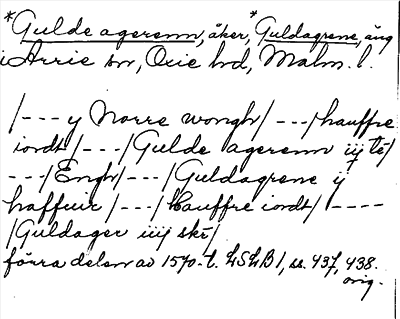 *Gulde agerenn, åker, *Guldagrene, äng
i Arrie sn, Oxie hd, Malm. l.
/---y Norre wongh/---/hauffre
iordt/---/Gulde agerenn iij te/
---/Engh/---/Guldagrene ij
haffuir/---/Hauffre iordt/----
/Guldager iiij skr/
förra delen av 1570-t. LSLB 1, ss. 437, 438.
orig.